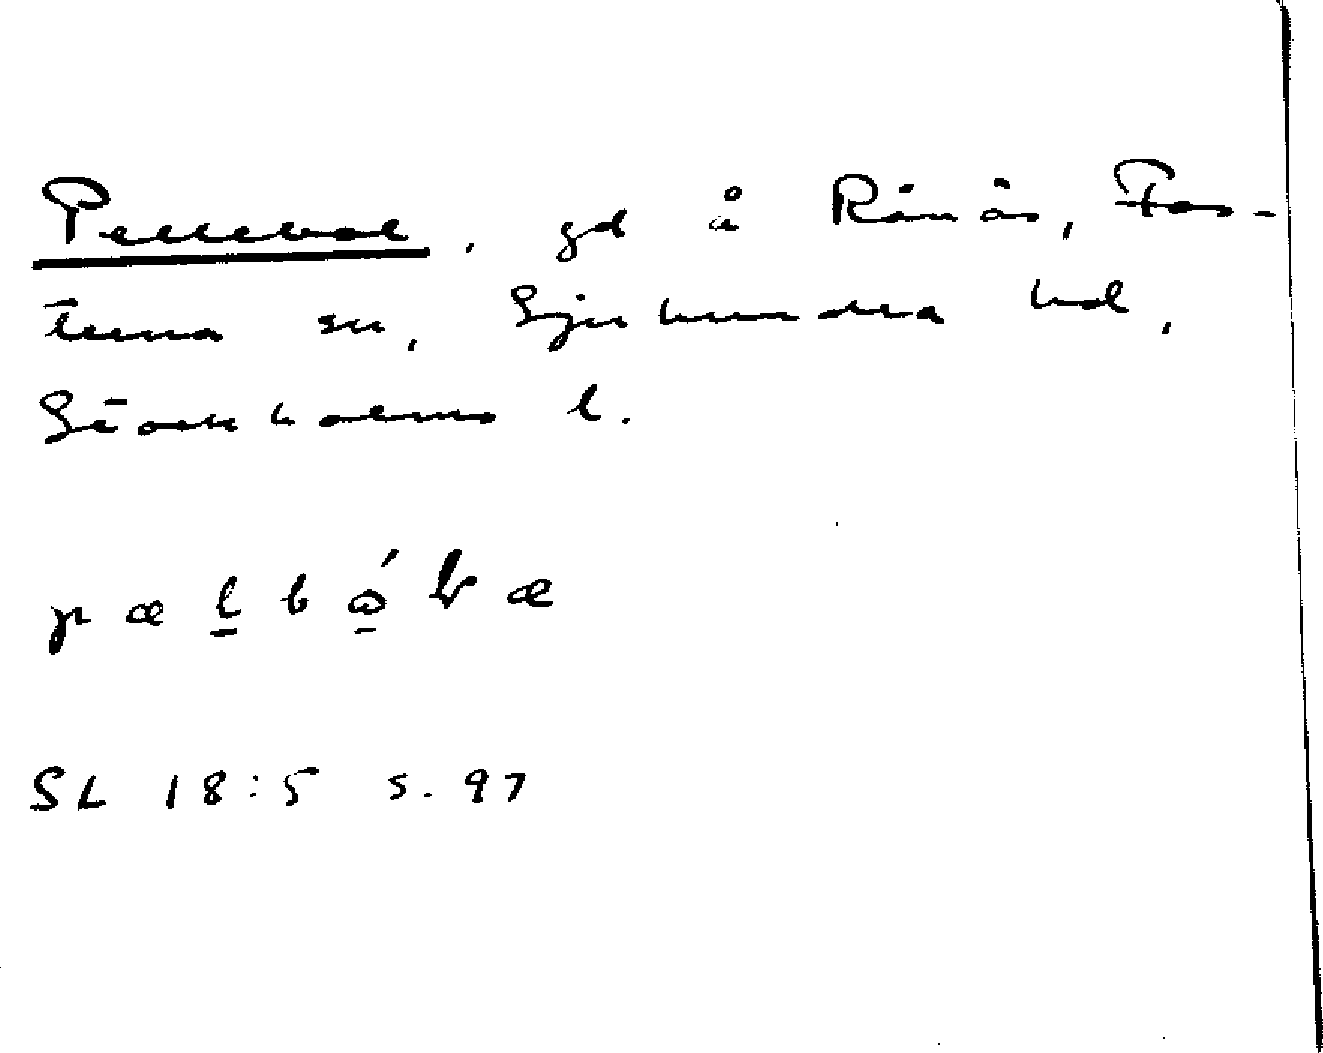 Pellebol, gd å Rånäs, Fas-
terna sn, Sjuhundra hd,
Stockholms l.
SL 18:5 s. 97